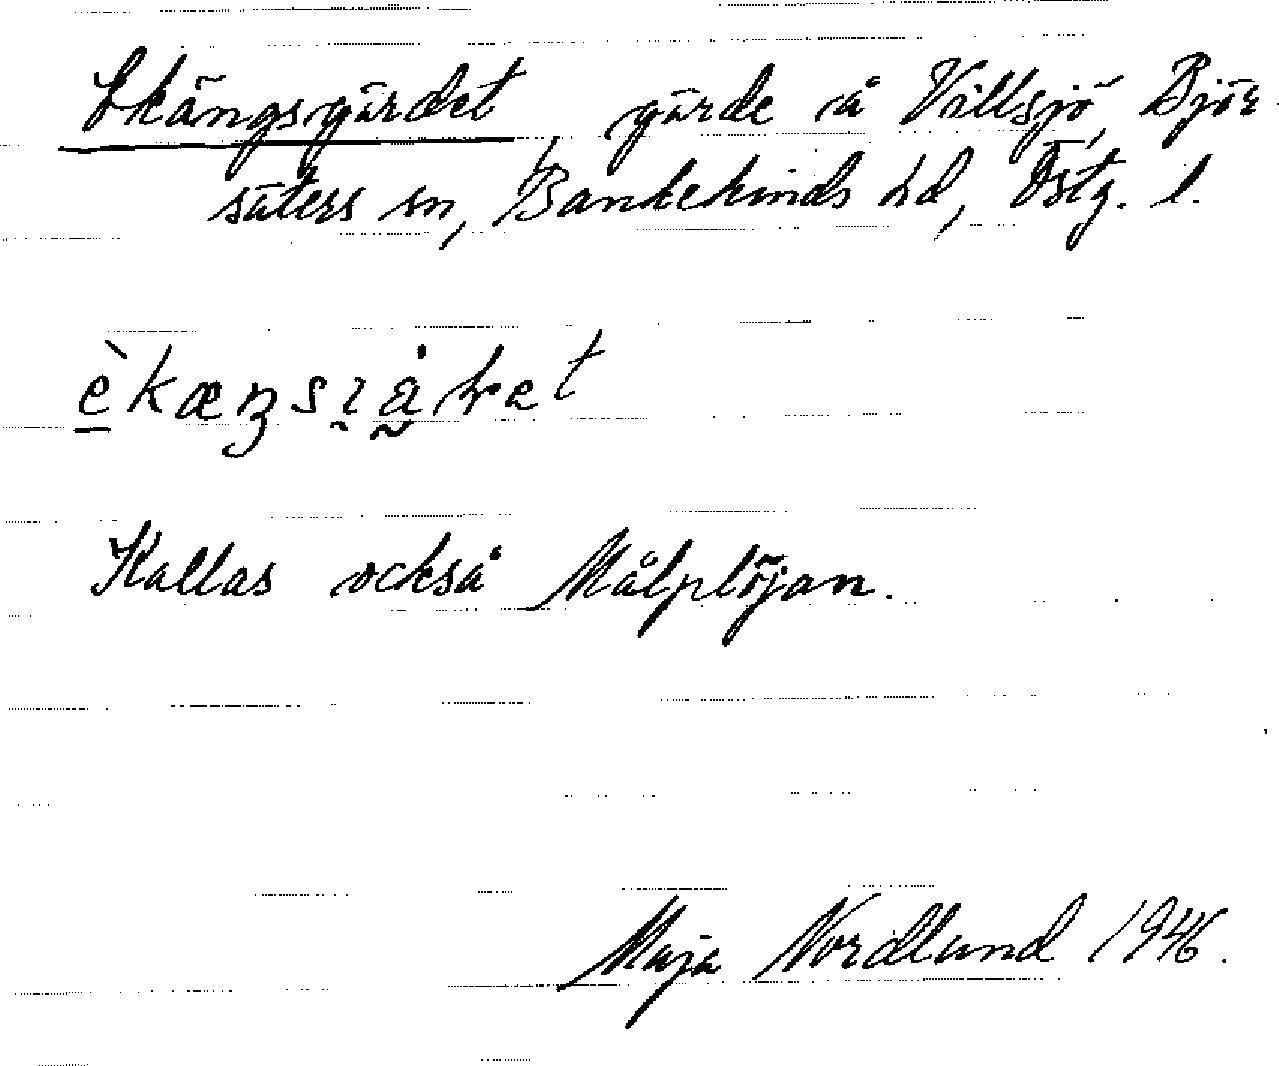 Ekängsgärdet, gärde å Vällsjö, Björ-
säters sn, Bankekinds hd, Östg. l.
Kallas också Målplöjan.
Maja Nordlund 1946.